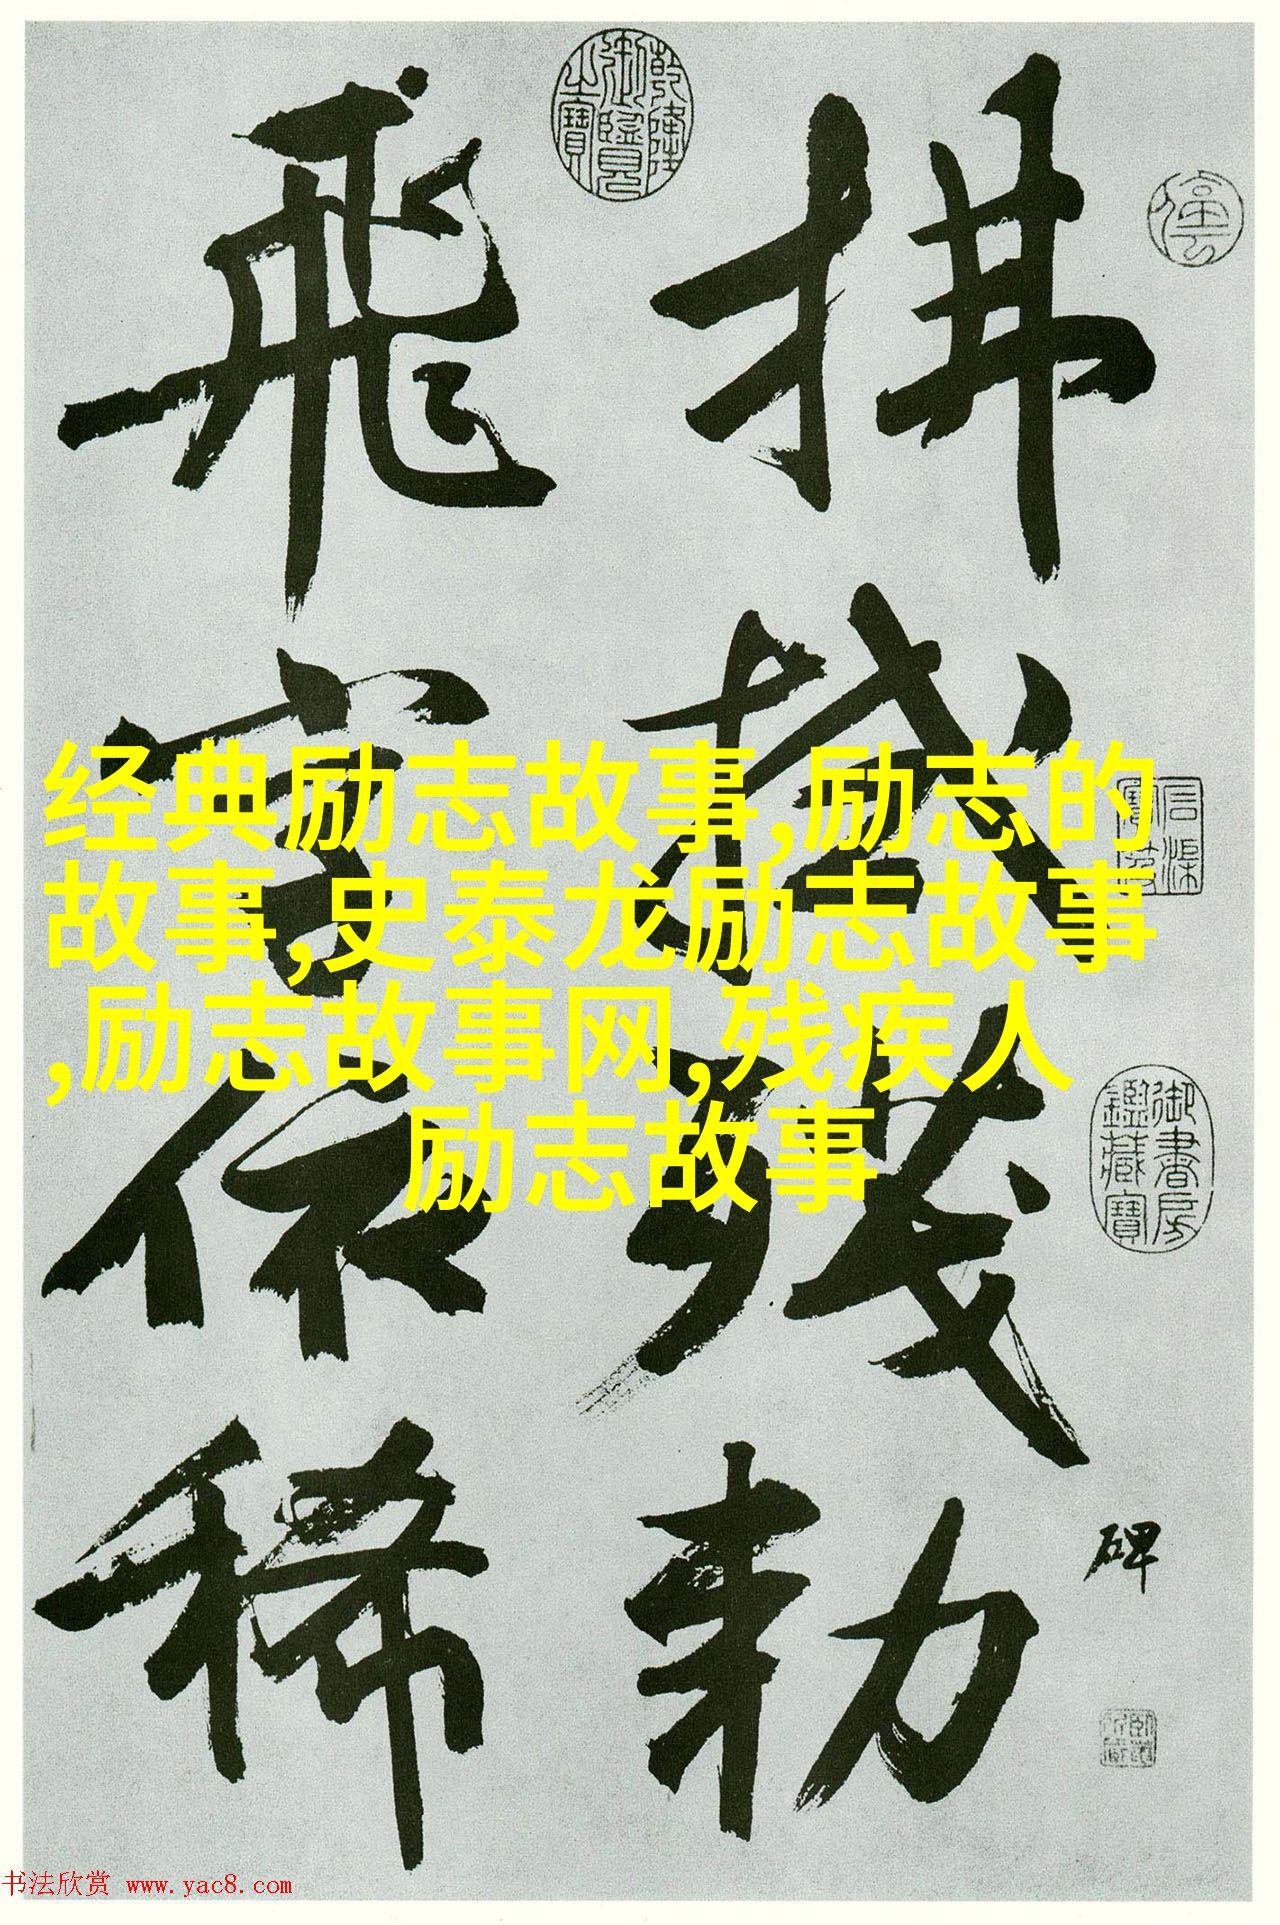 乾隆
御覽
之寶
拂拭殘勒
碑
飛字依稀
御書房
鑑藏寶
经典励志故事,励志的
故事,史泰龙励志故事
,励志故事网,残疾人
励志故事
书法欣赏 www.yac8.com